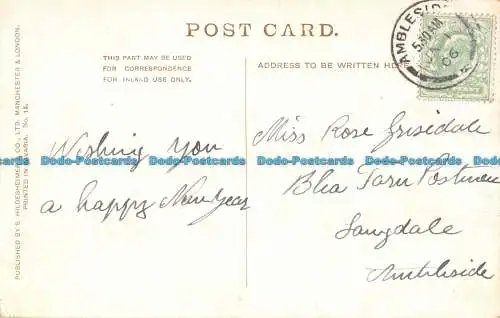 POST CARD.
THIS PART MAY BE USED
FOR CORRESPONDENCE
FOR INLAND USE ONLY.
ADDRESS TO BE WRITTEN HERE
AMBLESIDE
5.30AM
06
Wishing You
a happy New Year
Miss Rose Grisedale
Blea Tarn
Langdale
Ambleside
PUBLISHED BY S. HILDESHEIMER & CO., LTD. MANCHESTER & LONDON.
PRINTED IN BAVARIA. No. 15.
Dodo-Postcards Dodo-Postcards Dodo-Postcards Dodo-Postcards